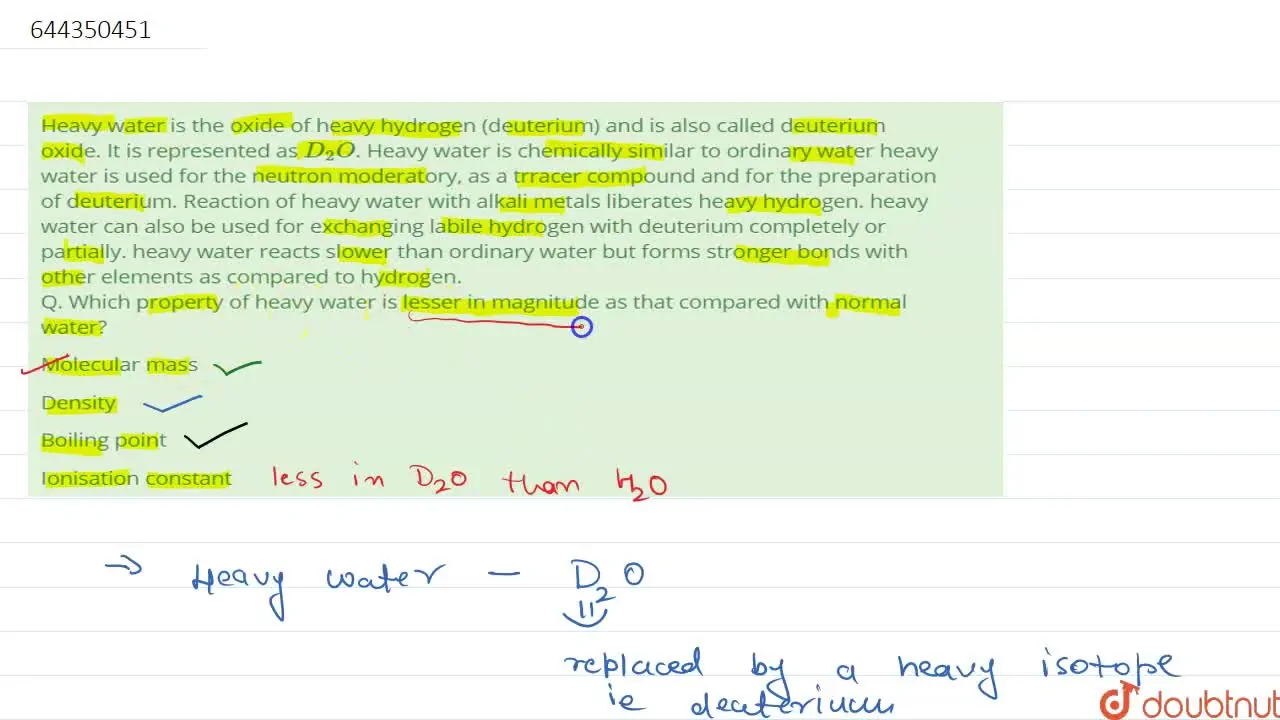 644350451
Heavy water is the oxide of heavy hydrogen (deuterium) and is also called deuterium
oxide. It is represented as D₂O. Heavy water is chemically similar to ordinary water heavy
water is used for the neutron moderatory, as a trracer compound and for the preparation
of deuterium. Reaction of heavy water with alkali metals liberates heavy hydrogen. heavy
water can also be used for exchanging labile hydrogen with deuterium completely or
partially. heavy water reacts slower than ordinary water but forms stronger bonds with
other elements as compared to hydrogen.
Q. Which property of heavy water is lesser in magnitude as that compared with normal
water?
Molecular mass
Density
Boiling point
Ionisation constant less in D₂O than H₂O
⇒ Heavy water - D₂O
replaced by a heavy isotope
ie deuterium
doubtnut